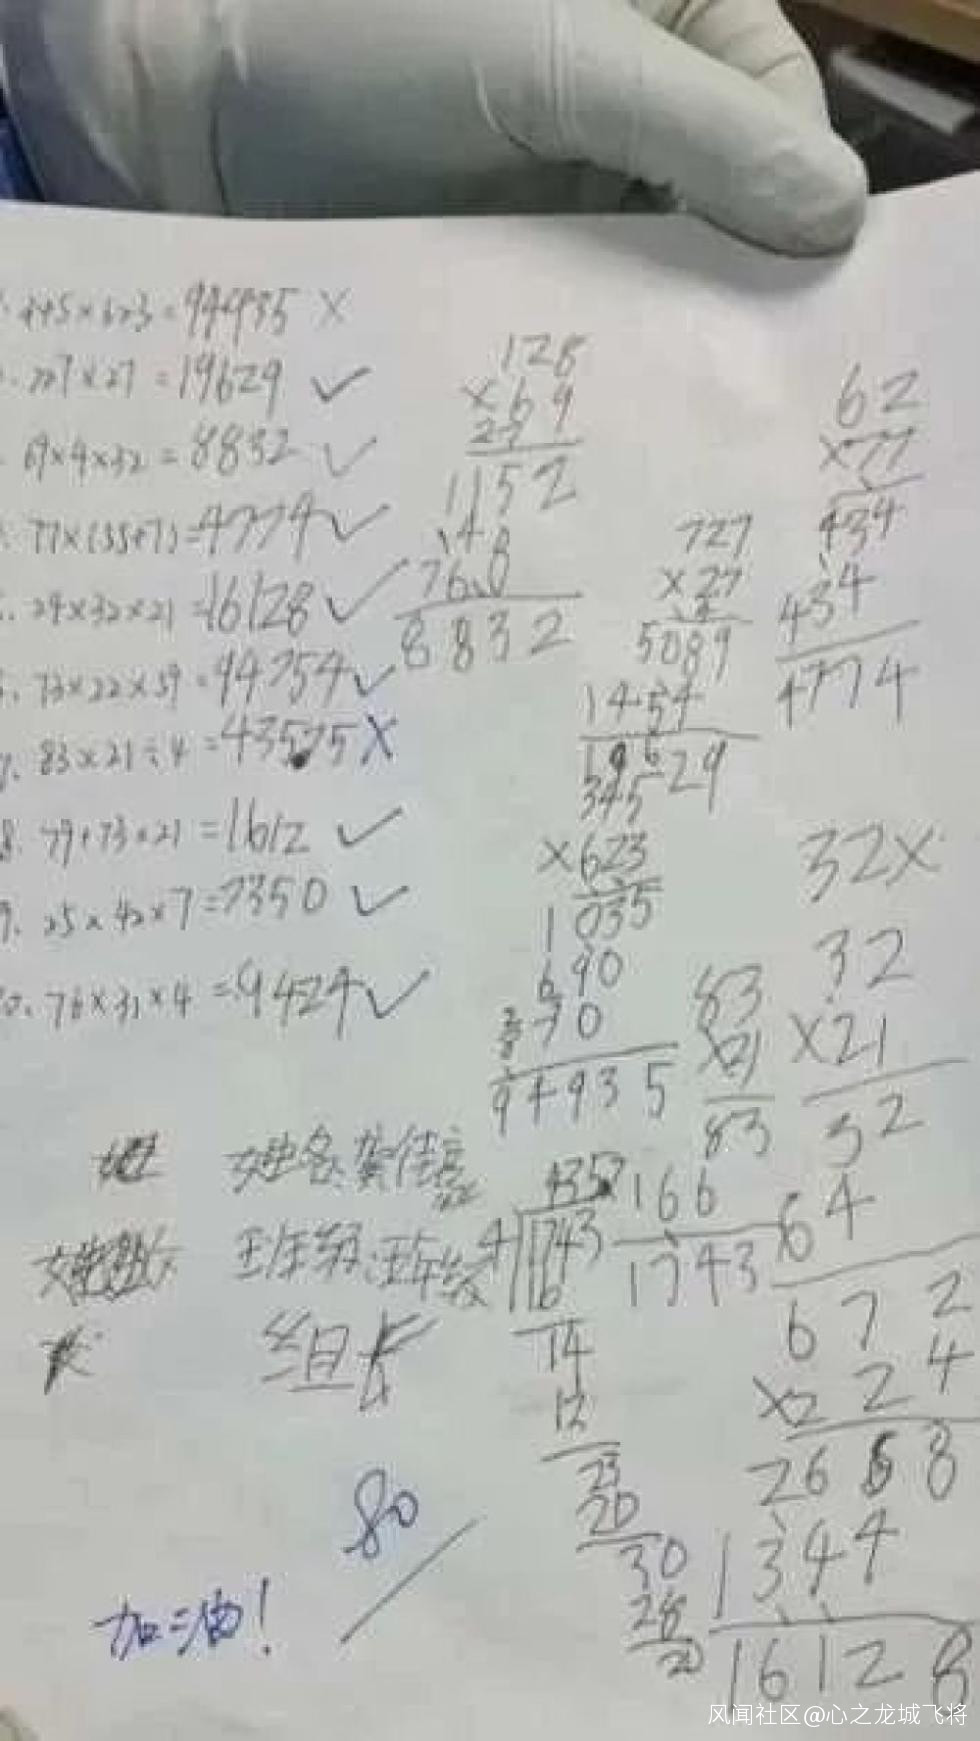 =94935 ×
×27 = 19629 ✓
69×4×32 = 8832 ✓
77×(55+7)=4774 ✓
24×32×21 =16128 ✓
73×22×59 =94754 ✓
7. 83×21÷4 =435.75 ×
8. 79+73×21 =1612 ✓
9. 25×42×7=7350 ✓
76×31×4 =9424 ✓
姓名
班级
组长
80
加油!
128
×69
1152
768
8832
62
×77
434
434
4774
727
×27
5089
1454
19629
345
×623
1035
690
94935
83
×21
83
166
1743
32×
32
×21
32
64
672
×24
2688
1344
16128
4
1743
16
14
12
23
20
30
28
20
风闻社区@心之龙城飞将